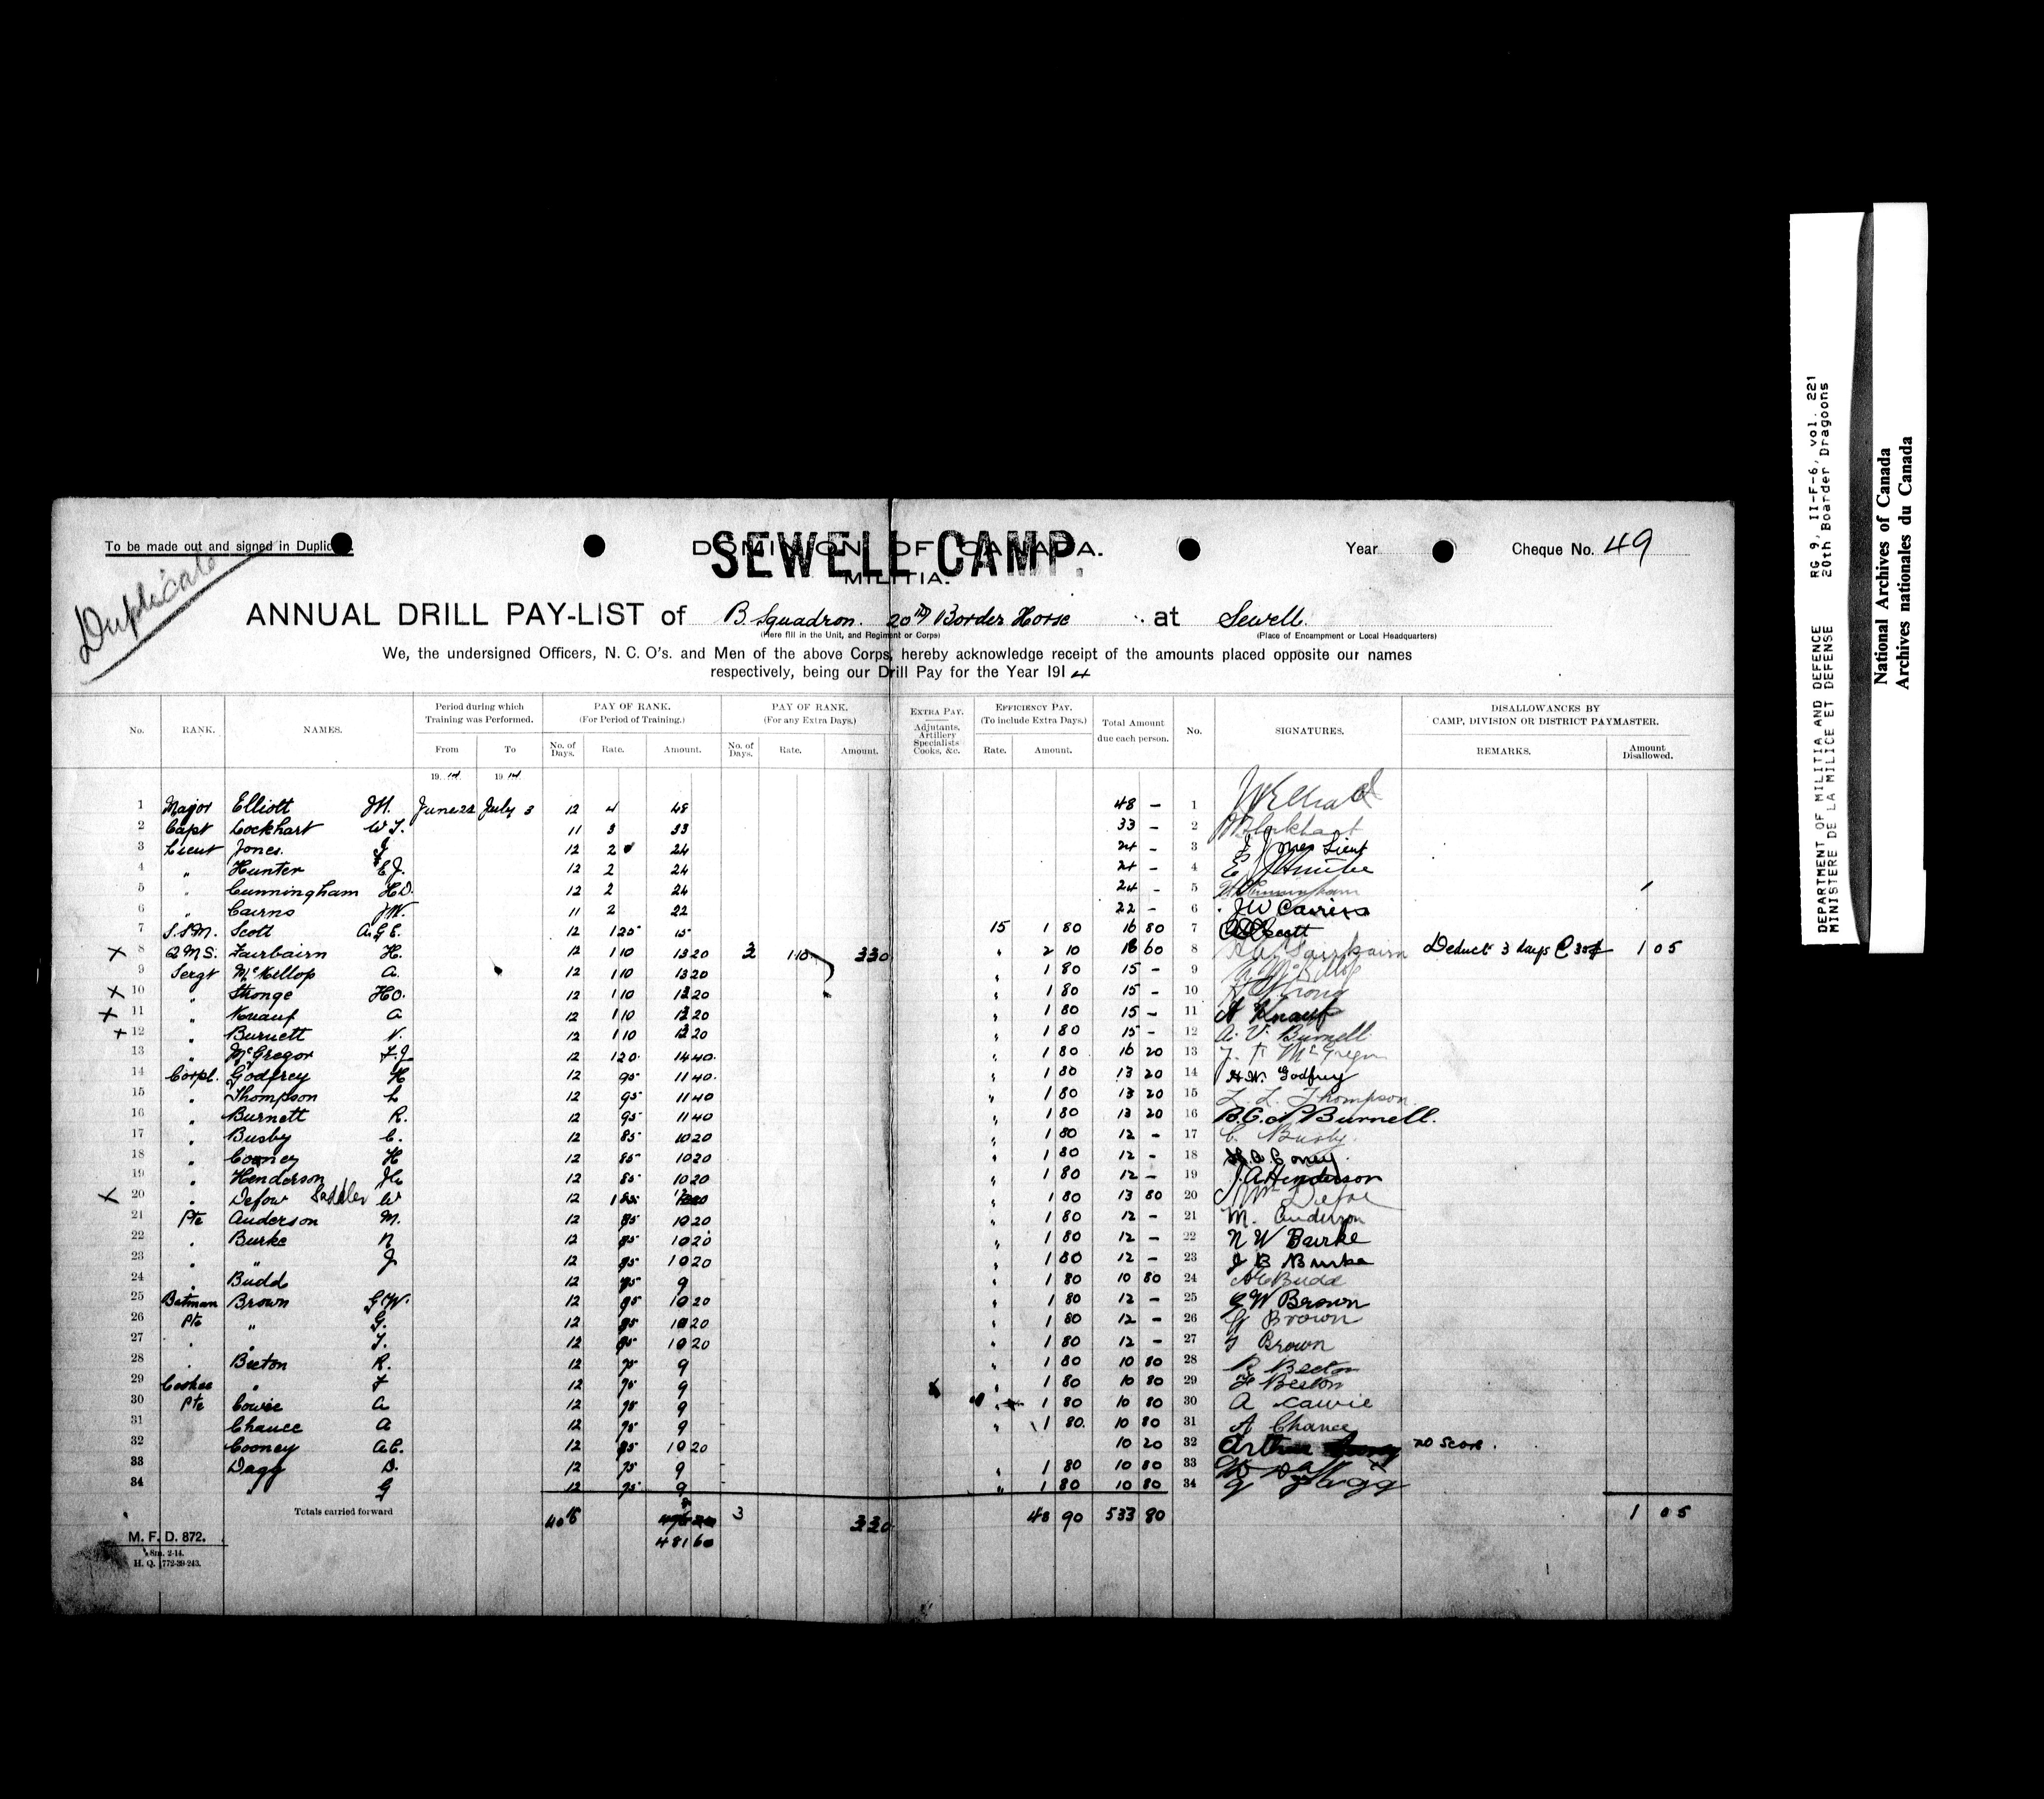 To be made out and signed in Duplic
Duplicate
DOMINION OF CANADA.
SEWELL CAMP.
MILITIA.
Year
Cheque No. 49
ANNUAL DRILL PAY-LIST of B Squadron. 20th Border Horse at Sewell.
(Here fill in the Unit, and Regiment or Corps) (Place of Encampment or Local Headquarters)
We, the undersigned Officers, N. C. O's. and Men of the above Corps, hereby acknowledge receipt of the amounts placed opposite our names
respectively, being our Drill Pay for the Year 1914
No. RANK. NAMES. Period during which Training was Performed. From To PAY OF RANK. (For Period of Training.) No. of Days. Rate. Amount. PAY OF RANK. (For any Extra Days.) No. of Days. Rate. Amount. EXTRA PAY. Adjutants, Artillery Specialists Cooks, &c. EFFICIENCY PAY. (To include Extra Days.) Rate. Amount. Total Amount due each person. No. SIGNATURES. DISALLOWANCES BY CAMP, DIVISION OR DISTRICT PAYMASTER. REMARKS. Amount Disallowed.
19 14 19 14
1 Major Elliott J.M. June 22 July 3 12 4 48 48 – 1
2 Capt Lockhart W.T. 11 3 33 33 – 2 Lockhart
3 Lieut Jones. J 12 2 24 24 – 3 E J Jones Lieut
4 " Hunter E.J. 12 2 24 24 – 4 E J Hunter
5 " Cunningham H.D. 12 2 24 24 – 5 Cunningham
6 " Cairns J.W. 11 2 22 22 – 6 J W Cairns
7 S.S.M. Scott A.G.E. 12 1 25 15 15 1 80 16 80 7 Scott
X 8 Q.M.S. Fairbairn H. 12 1 10 13 20 3 1.10 3 30 " 2 10 18 60 8 Fairbairn Deduct 3 days @ 35¢ 1 05
9 Sergt McKillop A. 12 1 10 13 20 " 1 80 15 – 9 A McKillop
X 10 " Stronge H.O. 12 1 10 13 20 " 1 80 15 – 10
X 11 " Knauf A 12 1 10 13 20 " 1 80 15 – 11 A Knauf
+ 12 " Burnett V. 12 1 10 13 20 " 1 80 15 – 12 A. V. Burnell
13 " McGregor F.J 12 1 20 14 40 " 1 80 16 20 13 McGregor
14 Corpl. Godfrey H 12 95 11 40 " 1 80 13 20 14 H.W. Godfrey
15 " Thompson L 12 95 11 40 " 1 80 13 20 15 L. L. Thompson
16 " Burnett R. 12 95 11 40 " 1 80 13 20 16 Burnell.
17 " Busby C. 12 85 10 20 " 1 80 12 – 17 C. Busby
18 " Cooney H 12 85 10 20 " 1 80 12 – 18
19 " Henderson 12 85 10 20 " 1 80 12 – 19 J.A Henderson
X 20 " Defow Saddler W 12 " 1 80 13 80 20 Wm Defoe
21 Pte Anderson M. 12 85 10 20 " 1 80 12 – 21 M. Anderson
22 " Burke N 12 85 10 20 " 1 80 12 – 22 N W Burke
23 " " J 12 85 10 20 " 1 80 12 – 23 J B Burke
24 Budd 12 9 " 1 80 10 80 24 Budd
25 Batman Brown G.W. 12 85 10 20 " 1 80 12 – 25 G W Brown
26 Pte " G. 12 85 10 20 " 1 80 12 – 26 G Brown
27 " " T. 12 85 10 20 " 1 80 12 – 27 T Brown
28 " Beeton R. 12 75 9 " 1 80 10 80 28 R Beeton
29 " F 12 75 9 " 1 80 10 80 29 F Beeton
30 Pte Cowie A 12 75 9 1 80 10 80 30 A Cowie
31 Chance A 12 75 9 " 1 80 10 80 31 A Chance
32 Cooney A.C. 12 85 10 20 10 20 32 Arthur no score.
33 Dagg D. 12 75 9 " 1 80 10 80 33
34 " G 12 75 9 " 1 80 10 80 34 G Dagg
Totals carried forward 406 3 3 30 48 90 533 80 1 05
481 60
M. F. D. 872.
8m. 2-14.
H. Q. 1772-39-243.
DEPARTMENT OF MILITIA AND DEFENCE RG 9, II-F-6, vol. 221
MINISTERE DE LA MILICE ET DEFENSE 20th Boarder Dragoons
National Archives of Canada
Archives nationales du Canada